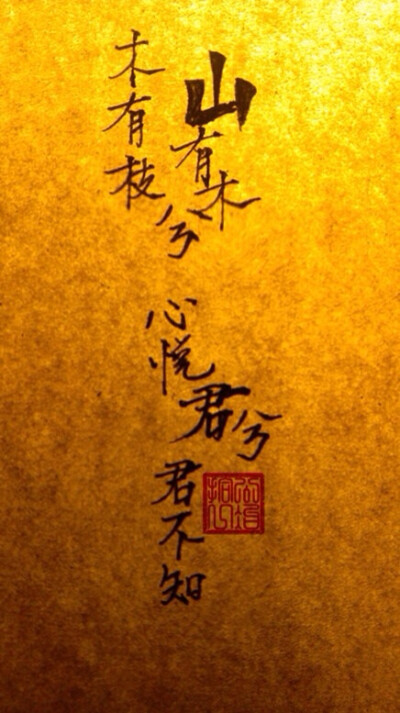 山有木兮
木有枝
心悦君兮
君不知